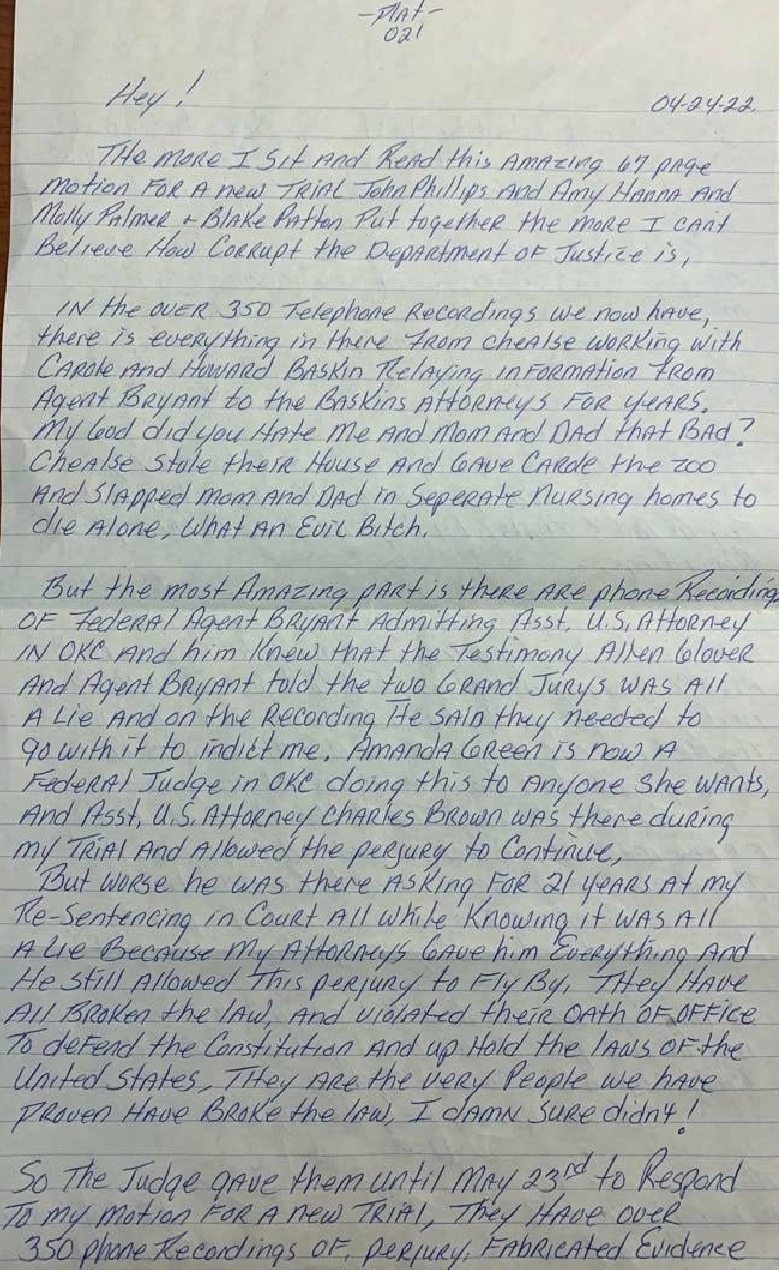 -Plat-
021
Hey!
04-24-22.
The more I sit and Read this Amazing 67 page
motion For A new Trial John Phillips And Amy Hanna And
Molly Palmer + Blake Patton Put together the more I cant
Believe How Corrupt the Department of Justice is,
IN the over 350 Telephone Recordings we now have,
there is everything in there From chealse working with
Carole and Howard Baskin Relaying information From
Agent Bryant to the Baskins Attorneys For years.
My God did you Hate Me And Mom And Dad that BAD?
Chealse Stole their House And Gave Carole the zoo
And Slapped mom And Dad in Seperate Nursing homes to
die Alone, What An Evil Bitch.
But the most Amazing part is there are phone Recording
OF Federal Agent Bryant Admitting Asst. U.S. Attorney
IN OKC And him Knew that the Testimony Allen Glover
And Agent Bryant told the two Grand Jurys was All
A Lie And on the Recording He said they needed to
go with it to indict me. Amanda Green is now A
Federal Judge in OKC doing this to Anyone she wants,
And Asst, U.S. Attorney Charles Brown was there during
my Trial And Allowed the perjury to Continue,
But worse he was there Asking For 21 years At my
Re-Sentencing in Court All while Knowing it was All
A Lie Because My Attorneys Gave him Everything And
He Still Allowed This perjury to Fly By. They Have
All Broken the law, And violated their OAth OF OFFice
To defend the Constitution And up Hold the laws OF the
United States, They Are the very People we have
proven Have Broke the law, I damn sure didn't!
So The Judge gave them until May 23rd to Respond
To my Motion For A new Trial, They Have over
350 phone Recordings OF, perjury, Fabricated Evidence